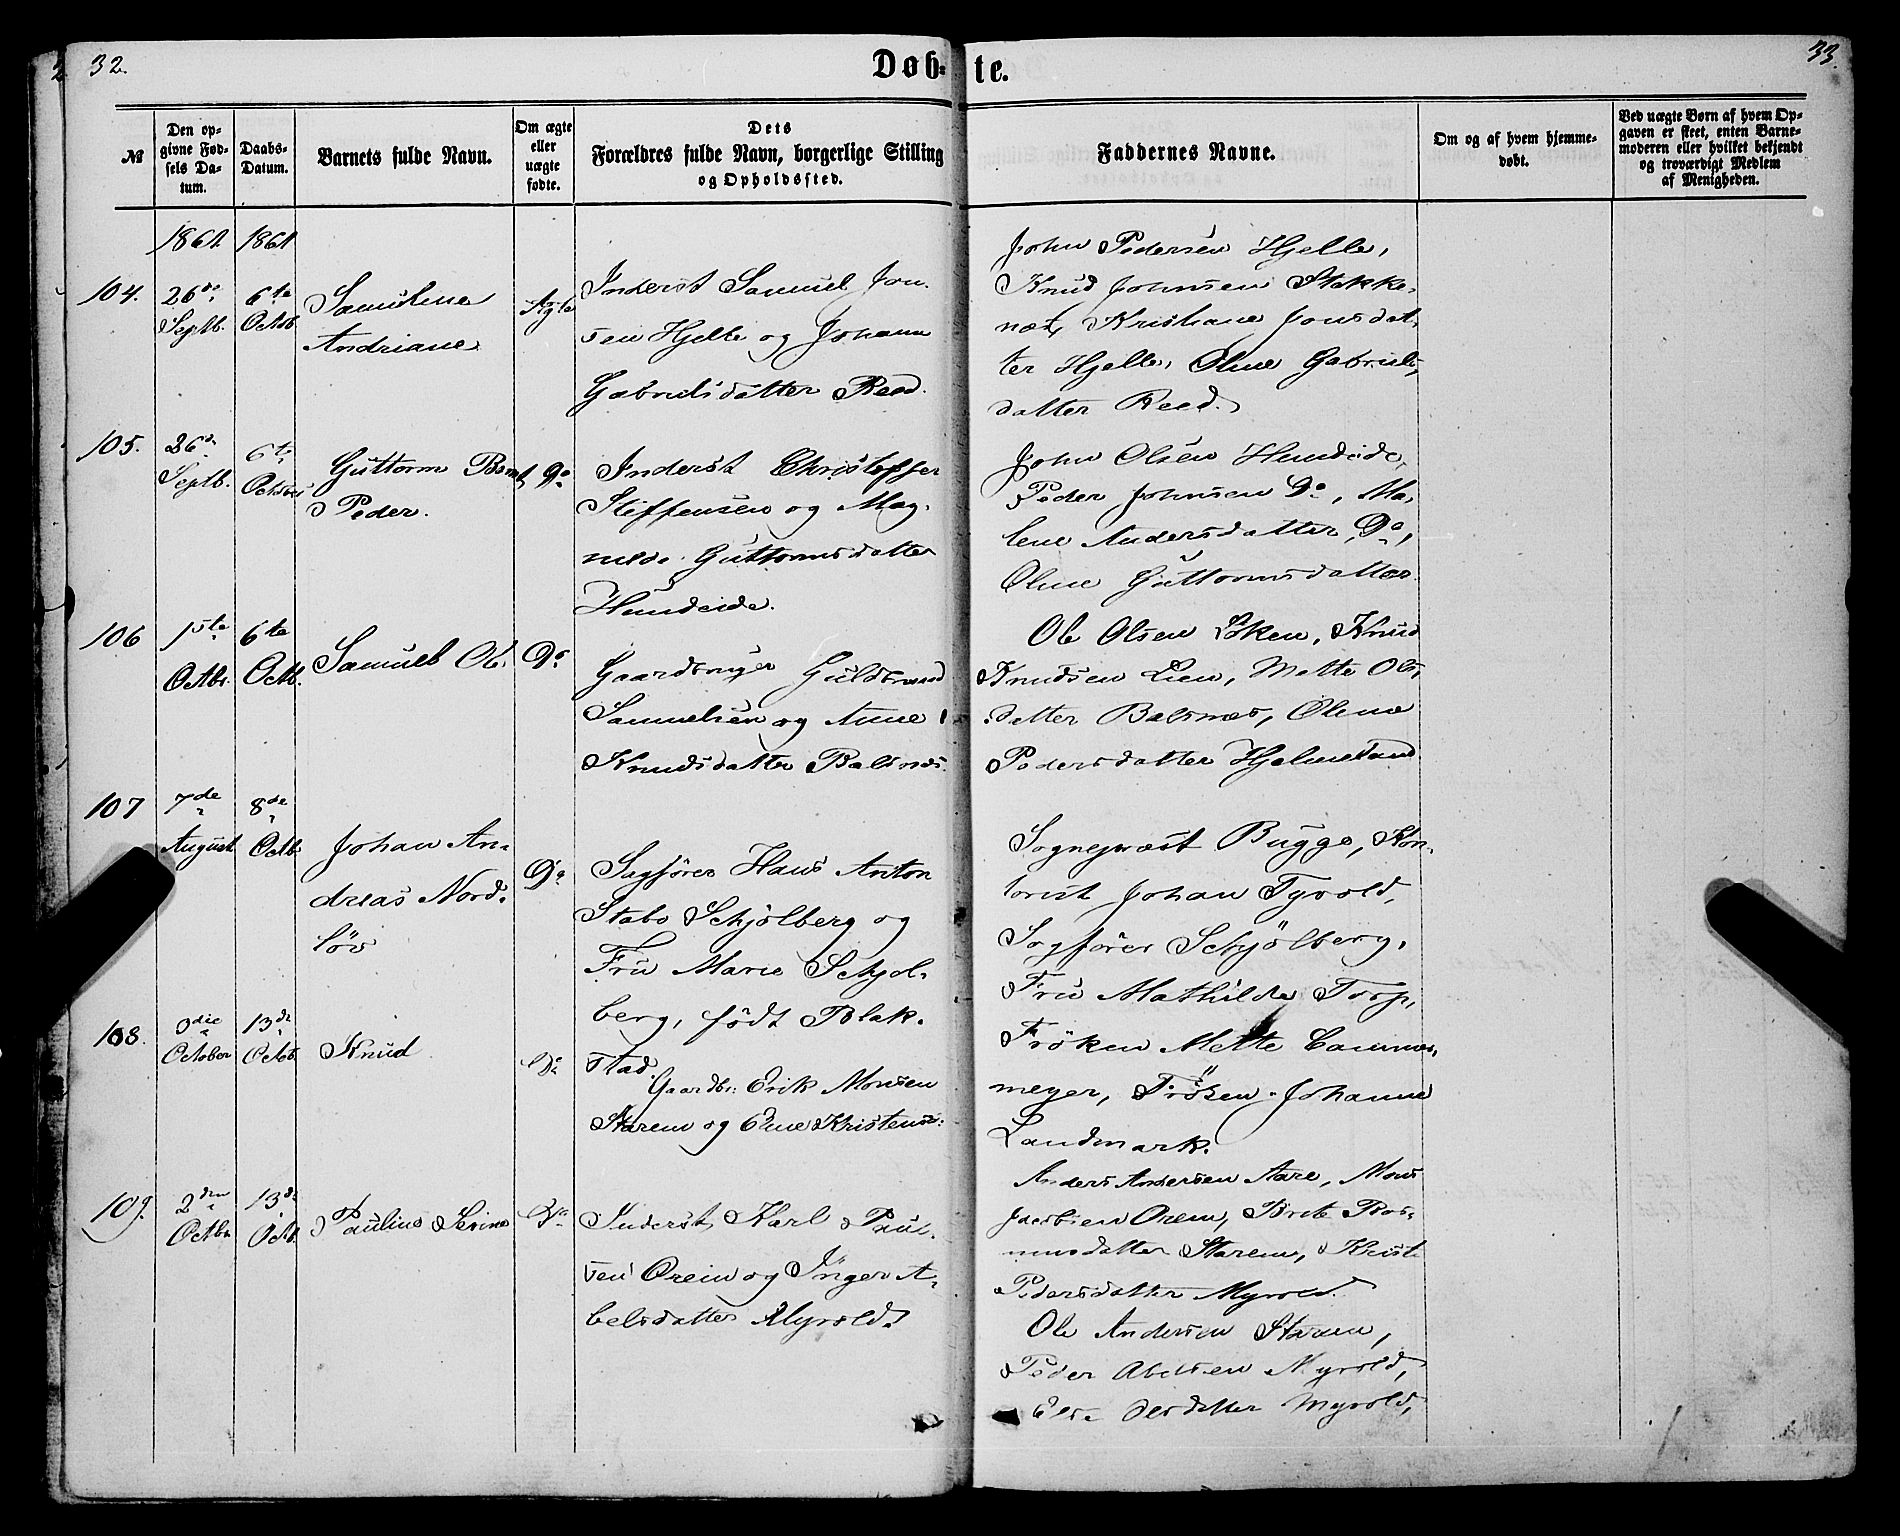 32.
Døb-
te.
33.
№
Den op-
givne Fød-
sels Da-
tum.
Daabs-
Datum.
Barnets fulde Navn.
Om ægte
eller
uægte
fødte.
Dets
Forældres fulde Navn, borgerlige Stilling
og Opholdssted.
Faddernes Navne.
Om og af hvem hjemme-
døbt.
Ved uægte Børn af hvem Op-
gaven er skeet, enten Barne-
moderen eller hvilket bekjendt
og troværdigt Medlem
af Menigheden.
1861 1861
104.
26de
Septb.
6te
Octob
Samuline
Andriane
Ægte
Inderst Samuel Jon-
sen Hjelle og Johanne
Gabrielsdatter Reed.
John Pedersen Hjelle,
Knud Johnsen Stokke-
næt, Kristiane Jonsdat-
ter Hjelle, Oline Gabriels-
datter Reed.
105.
26de
Septb.
6te
October
Guttorm Bernt
Peder.
Do
Inderst Christoffer
Steffensen og Mag-
nilde Guttormsdatter
Hundeide.
John Olsen Hundeide,
Peder Johnsen Do, Ma-
lene Andersdatter Do,
Oline Guttormsdatter
106
1ste
Octbr.
6te
Octb.
Samuel Ol.
Do
Gaardbruger Guldbrand
Samuelsen og Anne
Knudsdatter Balsnes.
Ole Olsen Löken, Knud
Knudsen Lien, Mette Ols-
datter Balsnes, Oline
Pedersdatter Hjelmeland
107
7de
August
8de
Octb.
Johan An-
dreas Nord-
löv
Do
Sagfører Hans Anton
Stabo Schjölberg og
Fru Marie Schjöl-
berg, födt Blak-
stad.
Sogneprest Bugge, Kon-
torist Johan Tyvold,
Sagfører Schjölberg,
Fru Mathilde Torp,
Fröken Mette Cammer-
meyer, Fröken Johanne
Landmark.
108.
3die
October
13de
Octob.
Knud
Do
Gaardbr: Erik Monsen
Starem og Eline Kristensd:
Anders Andersen Aare, Mons
Jacobsen Orem, Brite Ras-
musdatter Starem, Kristi
Pedersdatter Myrold.
109.
2den
Octbr.
13de
Octb.
Pauline Serine
Do
Inderst Karl Paul-
sen Oreim og Inger A-
belsdatter Myrold.
Ole Andersen Starem,
Peder Abelsen Myrold,
datter Myrold,